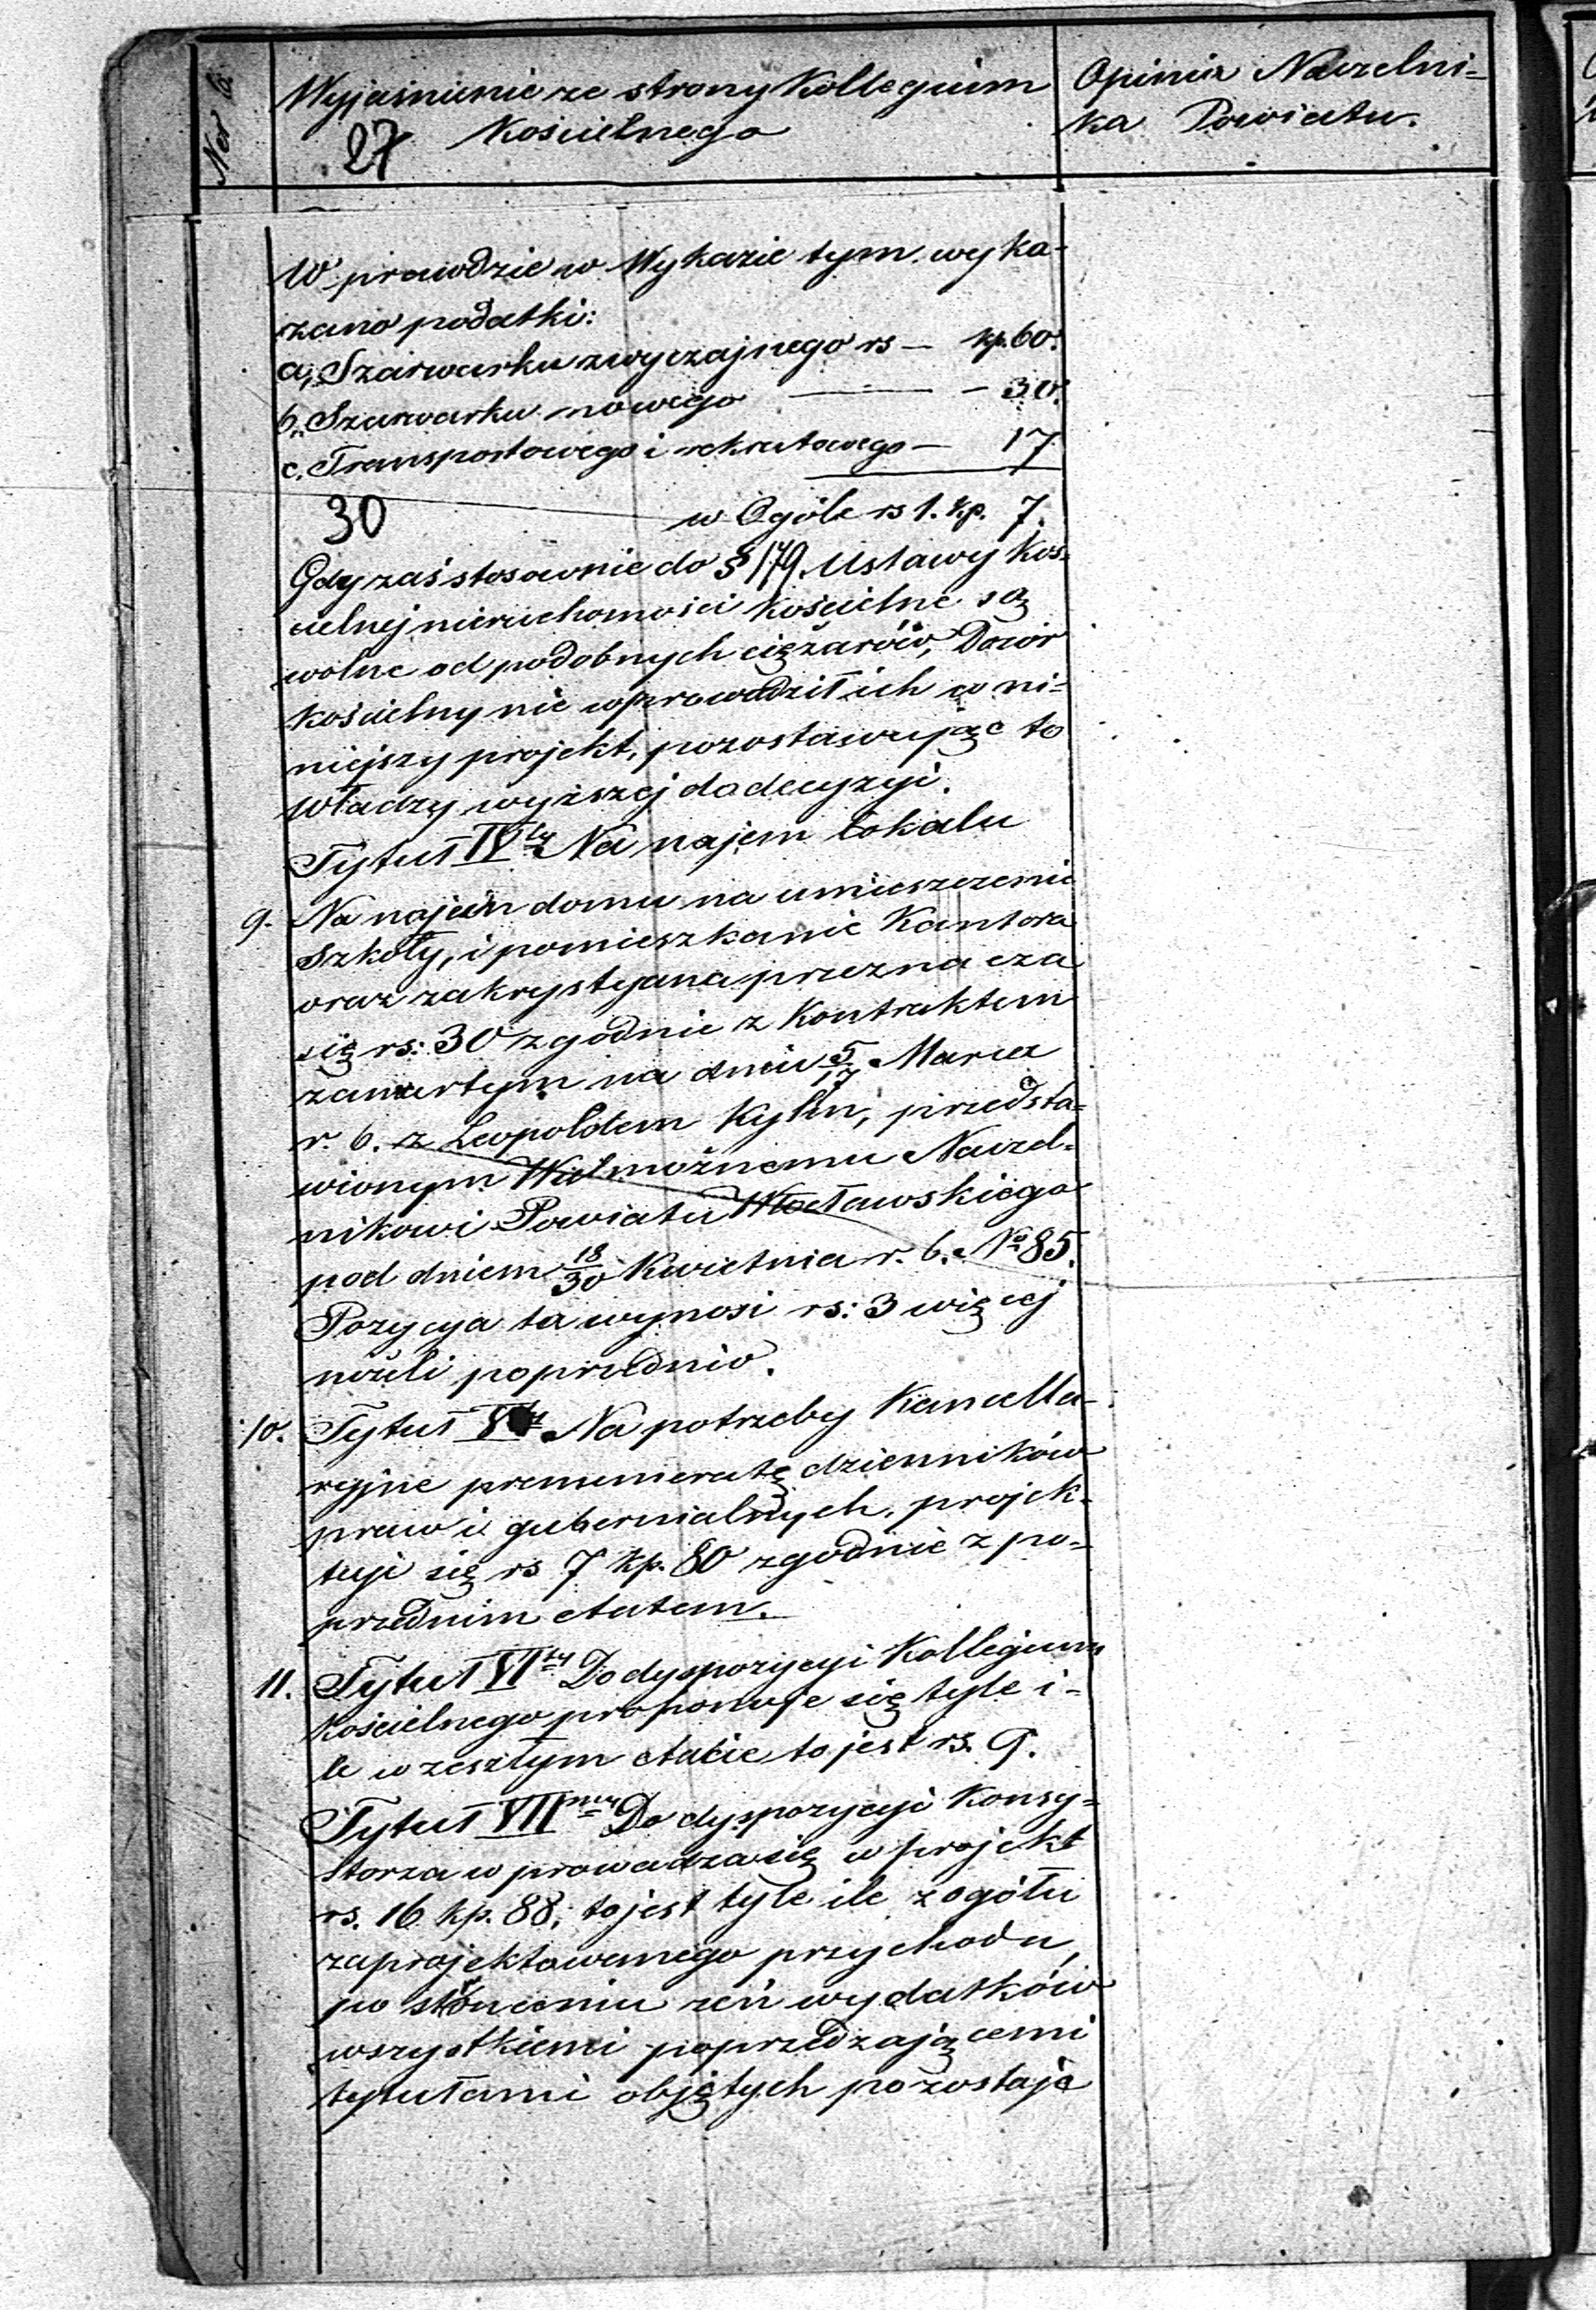 Ner b.
Wyjaśnienie ze strony Kollegium
Kościelnego
27
Opinia Naczelni=
ka Powiatu.
W prawdzie w Wykazie tym wyka-
zano podatki:
a, Szarwarku zwyczajnego rs — kp. 60.
b, Szarwarku nowego — — 30.
c. Transportowego i rekrutowego — 17.
30
w Ogóle rs 1. kp. 7.
Gdy zaś stosownie do § 179. Ustawy Koś=
cielnej nieruchomości Kościelne są
wolne od podobnych ciężarów, Dozór
Kościelny nie wprowadził ich w ni=
niejszy projekt, pozostawując to
Władzy wyższej do decyzyi.
Tytuł IVty Na najem lokalu
9. Na najem domu na umieszczenie
Szkoły, i pomieszkanie Kantora
oraz zakrystyana przeznacza
się rs: 30 zgodnie z Kontraktem
zawartym na dniu 5/17 Marca
r. b. z Leopoldem Kylm, przedsta=
wionym Wielmożnemu Naczel=
nikowi Powiatu Włocławskiego
pod dniem 18/30 Kwietnia r. b. No 85.
Pozycya ta wynosi rs: 3 więcej
niżeli poprzednio.
10. Tytuł Vty Na potrzeby Kancella-
ryjne prenumeratę dzienników
praw i gubernialnych, projek=
tuje się rs 7 kp. 80 zgodnie z po=
przednim etatem.
11. Tytuł VIty Do dyspozycyi Kollegium
Kościelnego proponuje się tyle i=
le w zeszłym etacie to jest rs. 9.
Tytuł VIImy Do dyspozycyi Konsy=
storza wprowadza się w projekt
rs. 16 kp. 88; to jest tyle ile z ogółu
zaprojektowanego przychodu,
po strąceniu zeń wydatków
wszystkiemi poprzedzającemi
tytułami objętych pozostaje